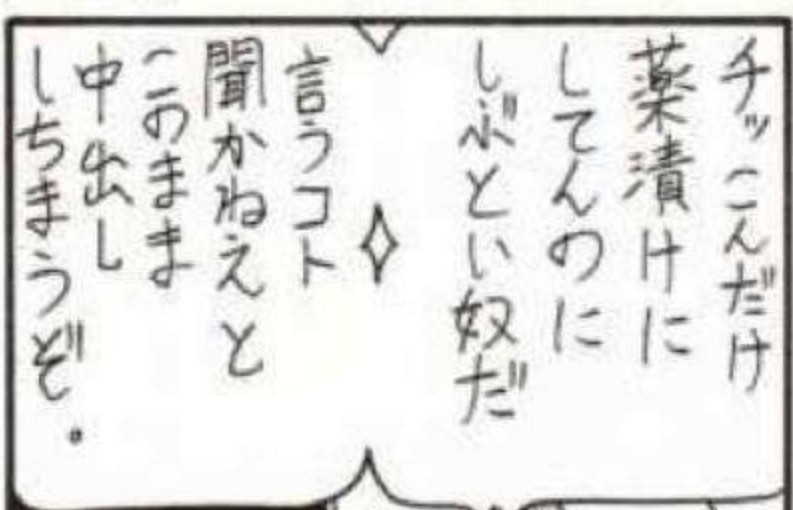 チッこんだけ
薬漬けに
してんのに
しぶとい奴だ
言うコト
聞かねえと
このまま
中出し
しちまうぞ。